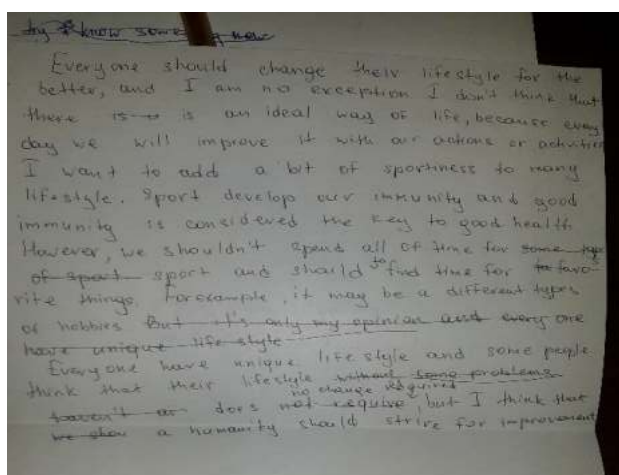 try to know some new
Everyone should change their lifestyle for the
better, and I am no exception I don't think that
there is is an ideal way of life, because every
day we will improve it with our actions or activities
I want to add a bit of sportiness to many
lifestyle. Sport develop our immunity and good
immunity is considered the key to good health
However, we shouldn't spend all of time for some type
of sport sport and should to find time for favo-
rite things, forexample, it may be a different types
of hobbies But it's only my opinion and every one
have unique life style
Everyone have unique life style and some people
think that their lifestyle without some problems
no change required
haven't an does not require, but I think that
we show a humanity should strive for improvement